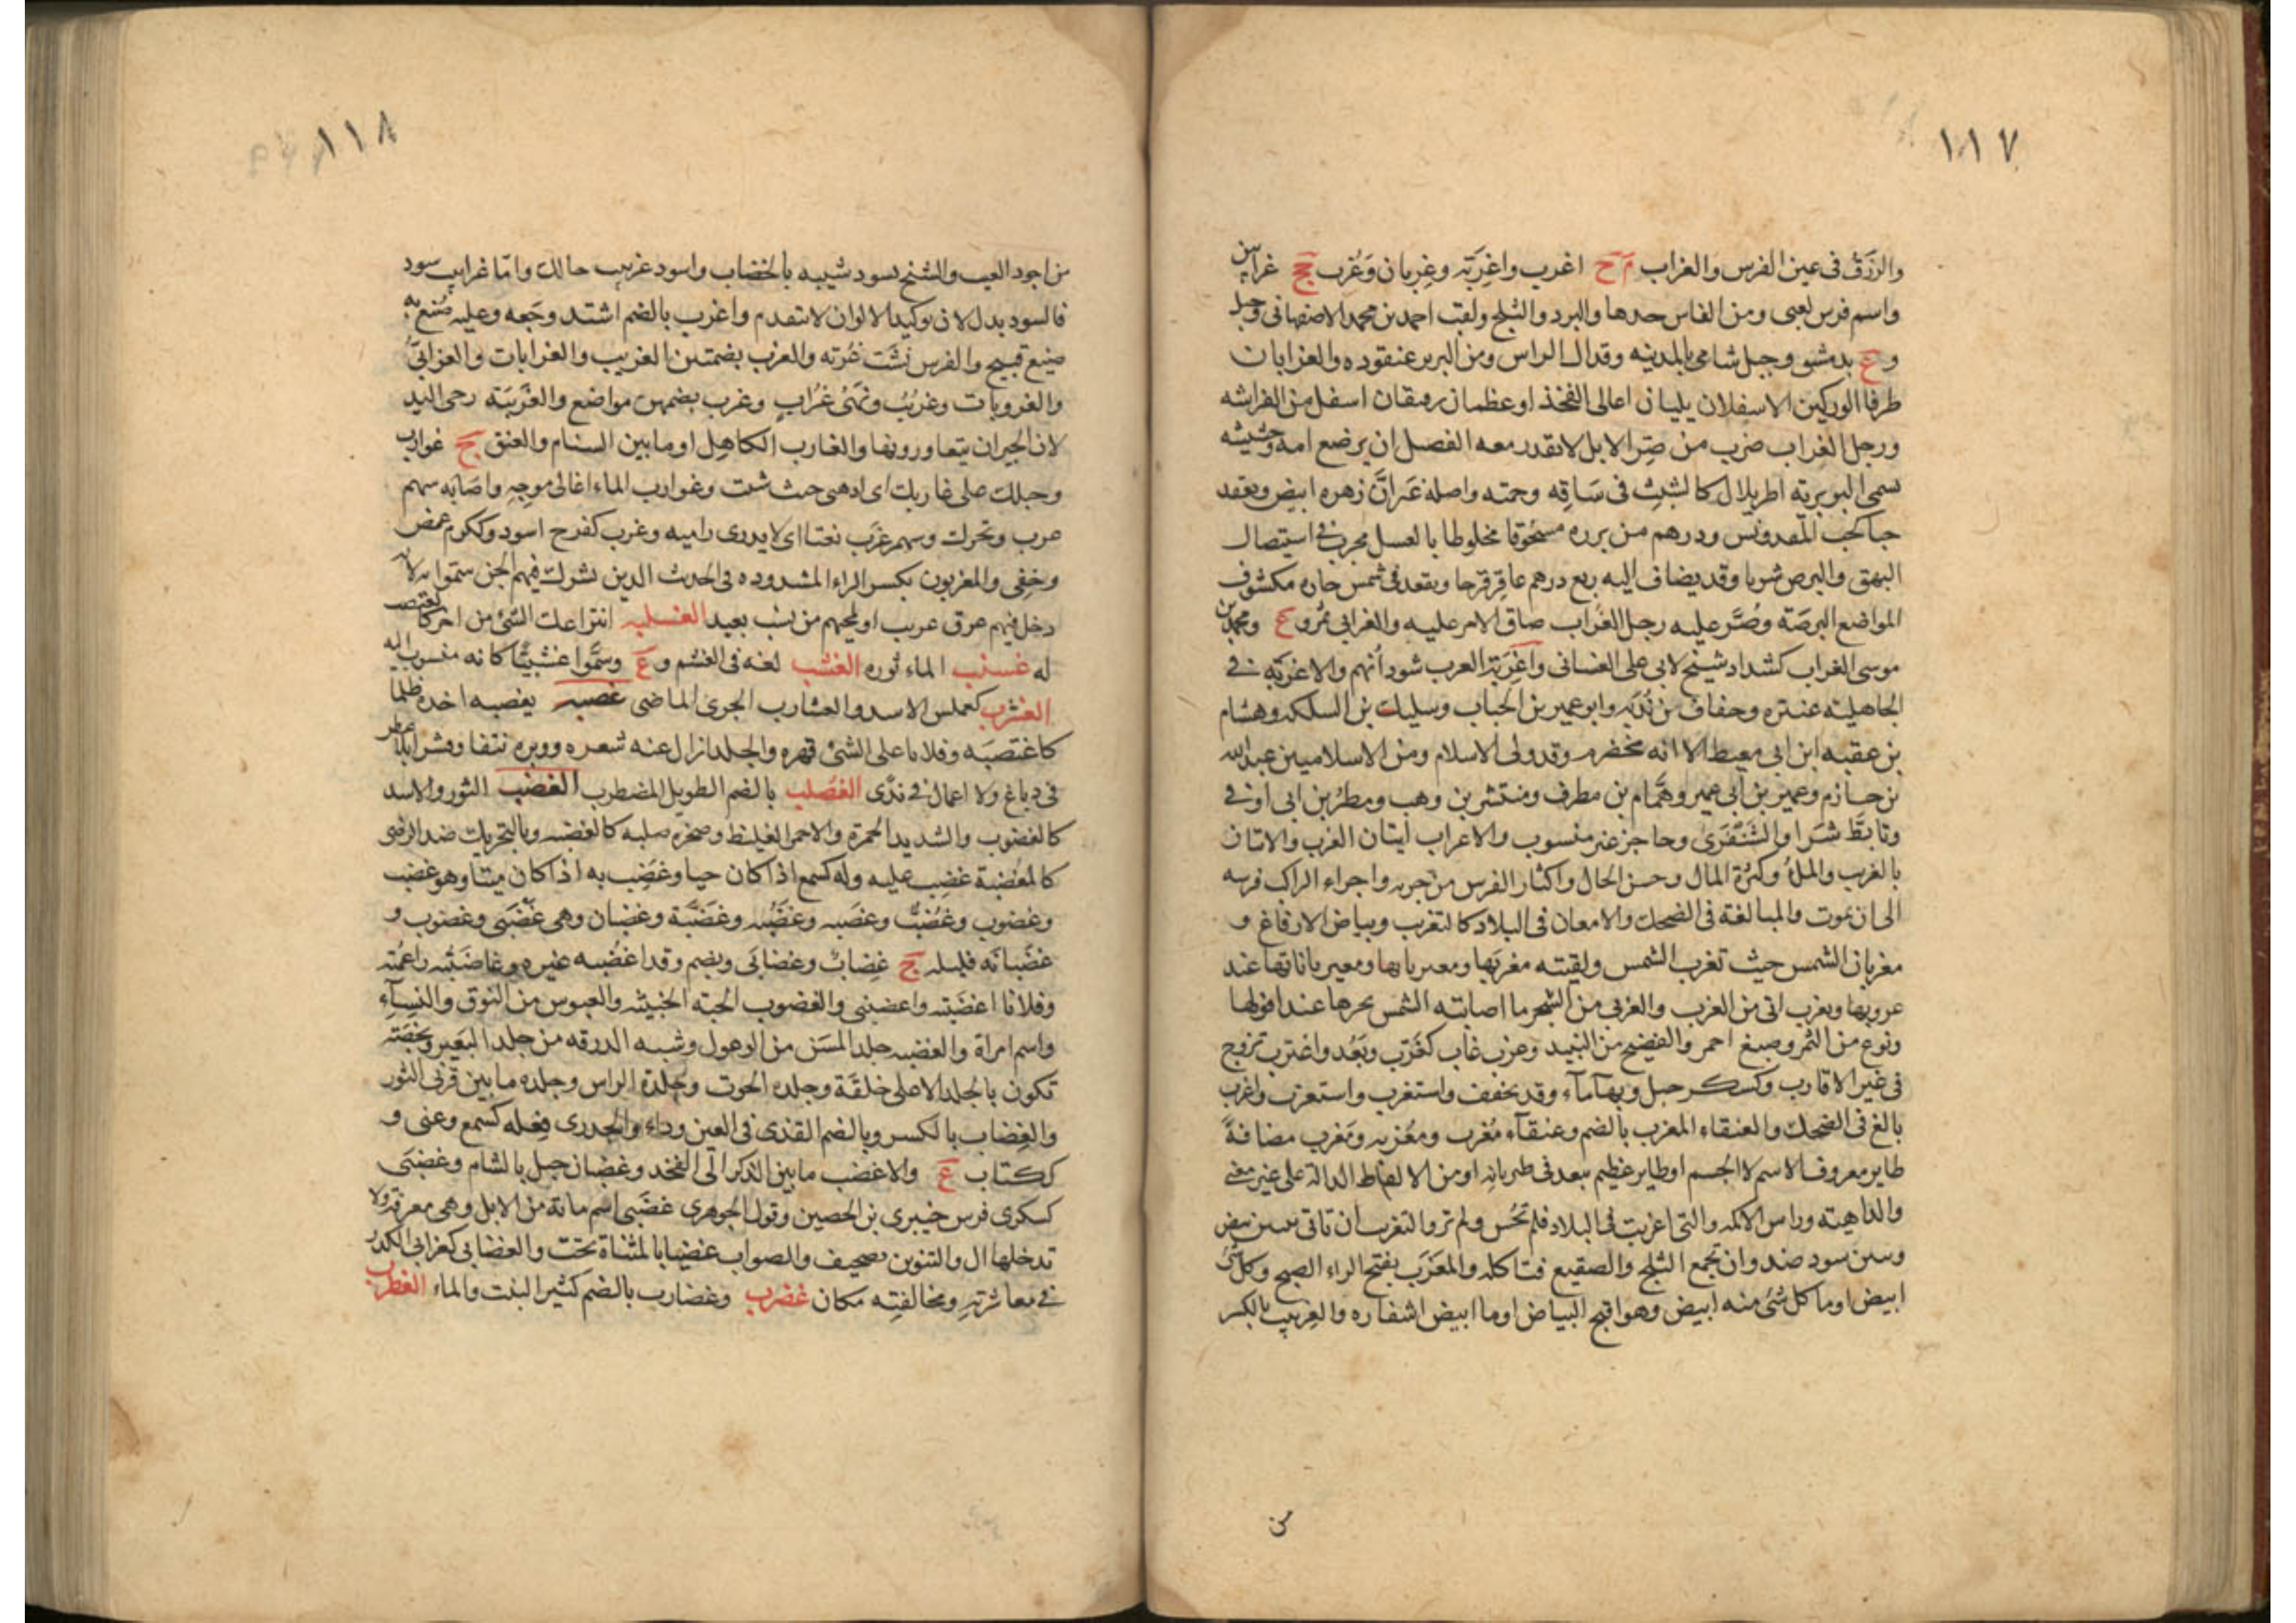 ١١٧
والزرق في عين الفرس والغراب م ج اغرب واغربة وغربان وغرب جج غرابين
واسم فرس لغنى ومن الفاس حدها والبرد والثلج ولقب احمد بن محمد الاصفهانى وجبل
و ع بدمشق وجبل شامى بالمدينه وقذال الراس ومن البربر عنقوده والغرابان
طرفا الوركين الاسفلان يليان اعالى الفخذ او عظمان رقيقان اسفل من الفراشه
ورجل الغراب ضرب من صر الابل لا تقدر معه الفصل ان يرضع امه وحشيشه
تسمى البربرية اطريلال كالشبث في ساقه وجمته واصله غير ان زهره ابيض ويعقد
حبا كحب المقدونس ودرهم من برره مسحوقا مخلوطا بالعسل مجرب في استيصال
البهق والبرص شربا وقد يضاف اليه ربع درهم عاقرقرحا ويقعد في شمس حاره مكشوف
المواضع البرصة وصر عليه رجل الغراب ضاق الامر عليه والغرابى تمر و ع ومحمد بن
موسى الغراب كشداد شيخ لابي على الغسانى واغربة العرب سودانهم والاغربة في
الجاهلية عنتره وخفاف بن ندبه وابو عمير بن الحباب وسليك بن السلكه وهشام
بن عقبه ابن ابى معيط الا انه مخضرم وقد ولى الاسلام ومن الاسلاميين عبدالله
بن حازم وعمير بن ابى عمير وهمام بن مطرف ومنتشر بن وهب ومطر بن ابى اوفى
وتابط شرا والشنفرى وحاجز غير منسوب والاغراب اتيان الغرب والاتيان
بالغرب والملؤ وكثرة المال وحسن الحال واكثار الفرس من جريه واجراء الراكب فرسه
الى ان يموت والمبالغة في الضحك والامعان في البلاد كالتغريب وبياض الارفاغ و
مغربان الشمس حيث تغرب الشمس ولقيته مغربها ومغربانها ومغيرباناتها عند
غروبها وتغرب اتى من الغرب والغربى من الشجر ما اصابته الشمس بحرها عند افولها
ونوع من التمر وصبغ احمر والفضيح من النبيد وغرب غاب كغرب وبعد واغترب تزوج
في غير الاقارب وكسكر جبل وبها ماء وقد يخفف واستغرب واستغرب واغرب
بالغ في الضحك والعنقاء المغرب بالضم وعنقاء مغرب ومغربه ومغرب مضافة
طاير معروف الاسم لا الجسم او طاير عظيم يبعد في طيرانه او من الالفاظ الدالة على غير معنى
والداهيته وراس الاكمه والتى اغربت في البلاد فلم تحس ولم تر والتغرب ان تاتى ببنين بيض
وبنين سود ضد وان تجمع الثلج والصقيع فتاكله والمغرب بفتح الراء الصبح وكل شئ
ابيض او ما كل شئ منه ابيض وهو اقبح البياض او ما ابيض اشفاره والغربيب بالكسر
من
١١٨
من اجود العنب والشيخ يسود شيبه بالخضاب واسود غربيب حالك واما غرابيب سود
فالسود بدل لان توكيد الالوان لا تتقدم واغرب بالضم اشتد وجعه وعليه صنع به
صنيع قبيح والفرس فشت غرته والغرب بضمتين الغريب والغرابات والغرابي
والغروبات وغرب ونهى غراب وغرب بضمهن مواضع والغريبة رحى اليد
لان الجيران يتعاورونها والغارب الكاهل او ما بين السنام والعنق ج غوارب
وحبلك على غاربك اى ادهبى حيث شئت وغوارب الماء اعالى موجه واصابه سهم
غرب وتحرك وسهم غرب نعتا اى لا يدرى راميه وغرب كفرح اسود وككرم غمض
وخفى والمغربون بكسر الراء المشدوده في الحديث الدين تشرك فيهم الجن سموا به لانه
دخل فيهم عرق غريب او لمجيهم من نسب بعيد الغسلبه انتزاعك الشئ من اخر كالمغتصب
له غسنب الماء ثوره الغشب لغه في الغشم و ع وسموا غشبيا كانه منسوب اليه
الغشرب كعملس الاسد والغشارب الجرى الماضى غصبه يغصبه اخده ظلما
كاغتصبه وفلانا على الشئ قهره والجلد ازال عنه شعره ووبره نتفا وقشرا بلا عطن
في دباغ ولا اعمال في ندى الغصلب بالضم الطويل المضطرب الغضب الثور والاسد
كالغضوب والشديد الحمرة والاحمر الغيلظ وصخره صلبه كالغضبه وبالتحريك ضد الرضى
كالمغضبة غضب عليه وله كسمع اذا كان حيا وغضب به اذا كان ميتا وهو غضب
وغضوب وغضب وغضبه وغضبه وغضبة وغضبان وهى غضبى وغضوب و
غضبانه قليله ج غضاب وغضابى ويضم وقد اغضبه غيره وغاضبته راغمته
وفلانا اغضبته واغضبنى والغضوب الحية الخبيثه والعبوس من النوق والنساء
واسم امراة والغضبه جلد المسن من الوعول وشبه الدرقه من جلد البعير وبخصة
تكون بالجلد الاعلى خلقة وجلده الحوت وجلدة الراس وجلده ما بين قرنى الثور
والغضاب بالكسر وبالضم القذى في العين وداء والجدرى فعله كسمع وعنى و
ككتاب ع والاغضب ما بين الذكر الى الفخد وغضبان جبل بالشام وغضبى
كسكرى فرس خيبرى بن الحصين وقول الجوهرى غضبى اسم مائة من الابل وهى معرفة ولا
تدخلها ال والتنوين تصحيف والصواب غضيا بالمثناة تحت والغضابى كغرابى الكدر
في معاشرته ومخالفته مكان غضرب وغضارب بالضم كثير البنت والماء الغطرب